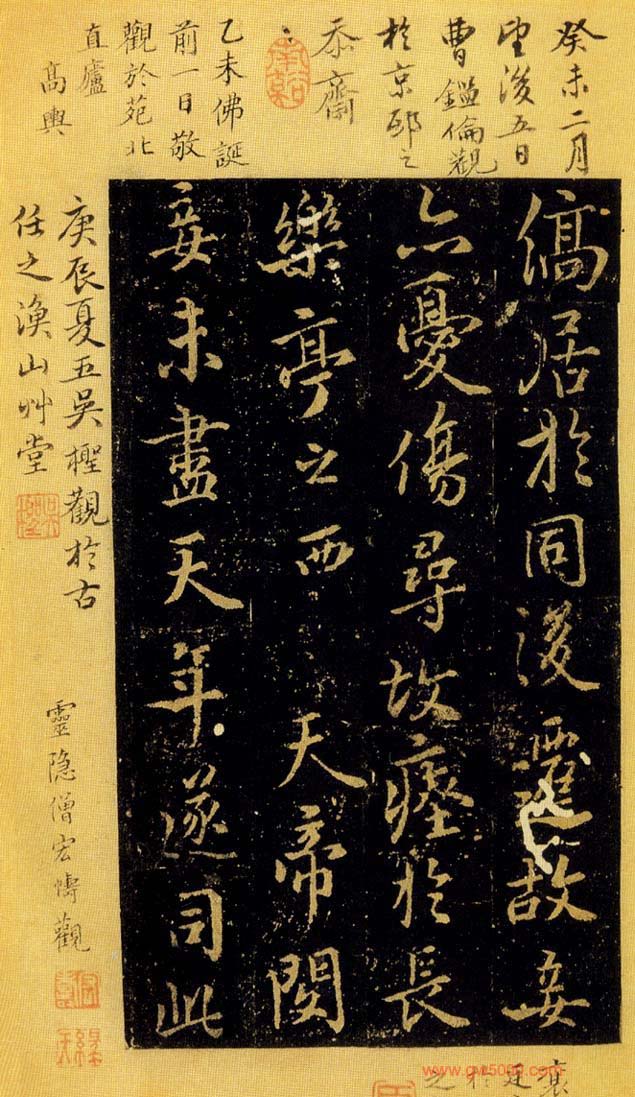 癸未二月
望後五日
曹鑑倫觀
於京邸之
忝齋
乙未佛誕
前一日敬
觀於苑北
直廬
高輿
縞居於同後遷故妾
亦憂傷尋故瘞於長
樂亭之西天帝閔
妾未盡天年遂司此
庚辰夏五吳檉觀於古
任之漁山艸堂
靈隱僧宏觀
於
之